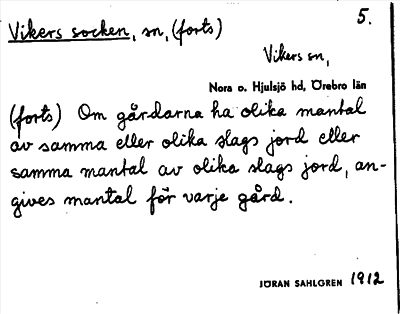 5.
Vikers socken, sn, (forts)
Vikers sn,
Nora o. Hjulsjö hd, Örebro län
(forts) Om gårdarna ha olika mantal
av samma eller olika slags jord eller
samma mantal av olika slags jord, an-
gives mantal för varje gård.
JÖRAN SAHLGREN 1912